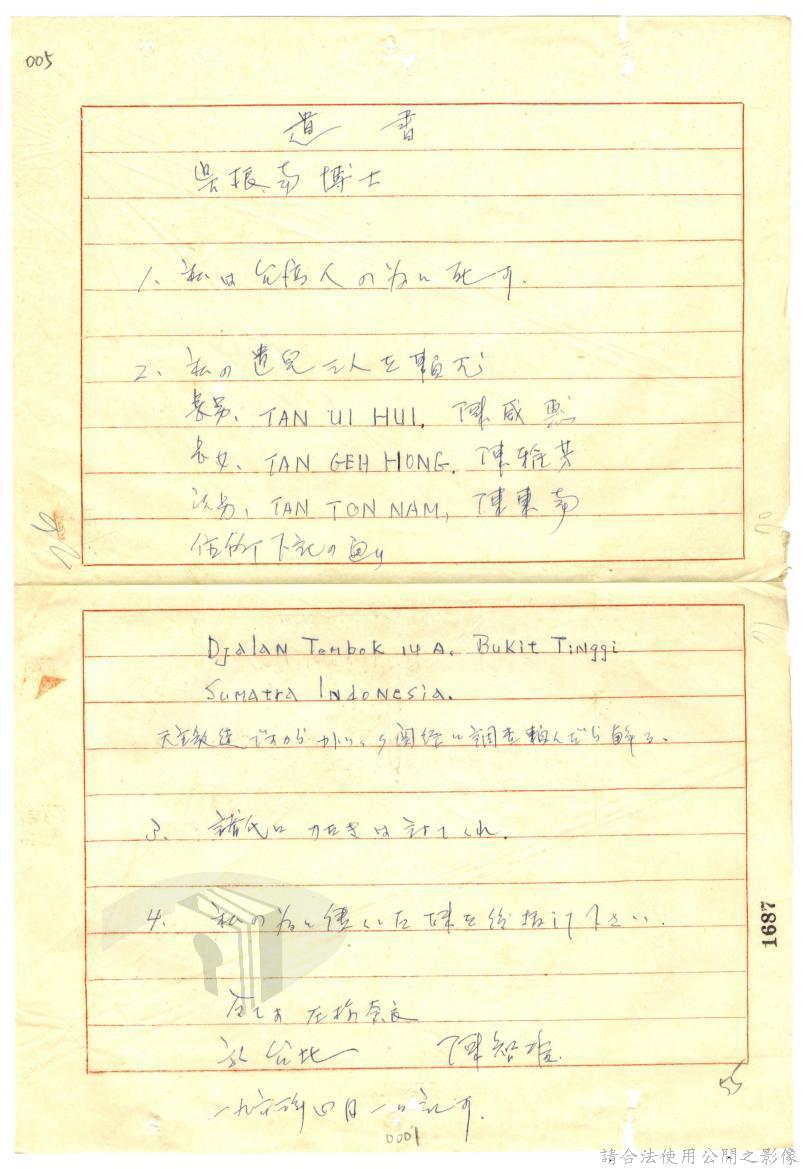 005
遺書
吳振南博士
1、私は台湾人の為に死す.
2、私の遺児三人を頼む
長男、TAN UI HUI. 陳威惠
長女、TAN GEH HONG. 陳雅芳
次男、TAN TON NAM, 陳東南
住所下記の通り
Djalan Tembok 14 A. Bukit Tinggi
Sumatra Indonesia.
天主教徒ですから カトリック関係に調査頼んだら解る.
3、
4. 私の為に 下さい.
於台北 陳智雄
一九六 年四月一日記す.
55
0001
1687
請合法使用公開之影像